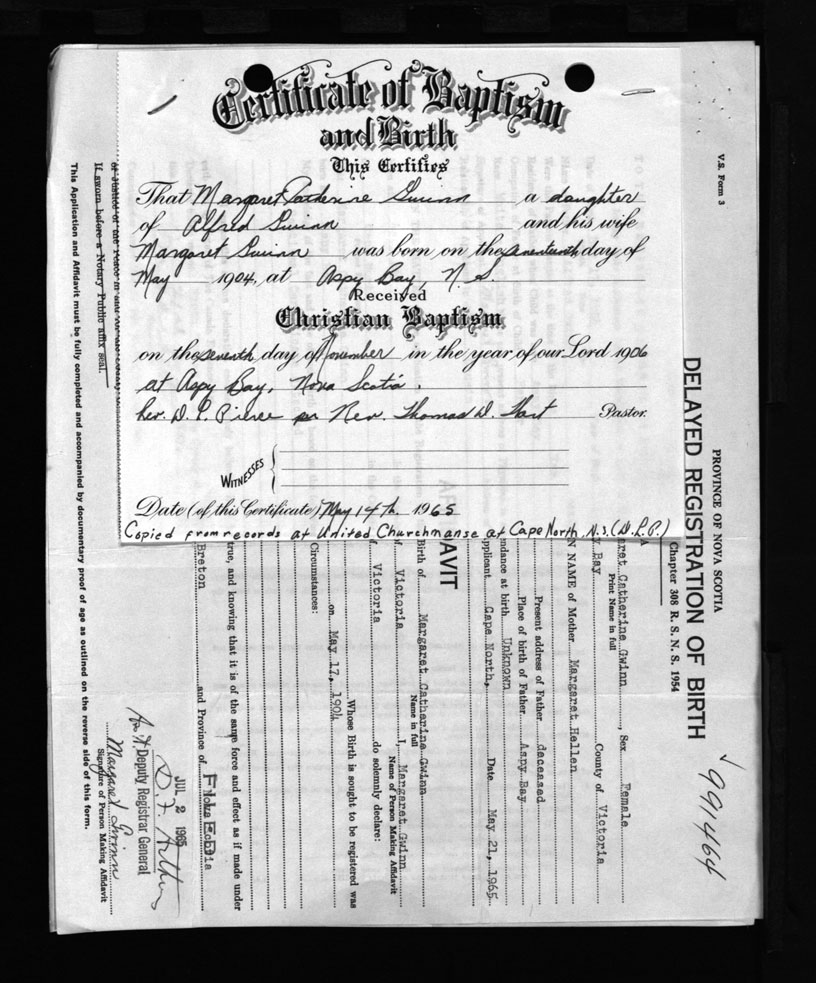 Certificate of Baptism
and Birth
This Certifies
That Margaret Catherine Gwinn a daughter
of Alfred Gwinn and his wife
Margaret Gwinn was born on the seventeenth day of
May 1904, at Aspy Bay, N. S.
Received
Christian Baptism
on the seventh day of November in the year of our Lord 1906
at Aspy Bay, Nova Scotia.
Rev. D. P. Pierce per Rev. Thomas D. Hart Pastor.
WITNESSES
Date (of this Certificate) May 14th 1965
Copied from records at United Church manse at Cape North, N.S. (D.L.P.)
V.S. Form 3
PROVINCE OF NOVA SCOTIA
DELAYED REGISTRATION OF BIRTH
Chapter 308 R. S. N. S. 1954
991464
aret Catherine Gwinn, Sex Female
Print Name in full
y Bay County of Victoria
NAME of Mother Margaret Hellen
Present address of Father deceased
Place of birth of Father Aspy Bay
ndance at birth Unknown
pplicant Cape North, Date May 21, 1965
AVIT
Birth of Margaret Catherine Gwinn
Name in full
Victoria I, Margaret Gwinn
Name of Person Making Affidavit
Victoria do solemnly declare:
Whose Birth is sought to be registered was
on May 17, 1904
Circumstances:
rue, and knowing that it is of the same force and effect as if made under
Breton and Province of
JUL 2 1965
Deputy Registrar General
Margaret Gwinn
Signature of Person Making Affidavit
If sworn before a Notary Public affix seal.
This Application and Affidavit must be fully completed and accompanied by documentary proof of age as outlined on the reverse side of this form.